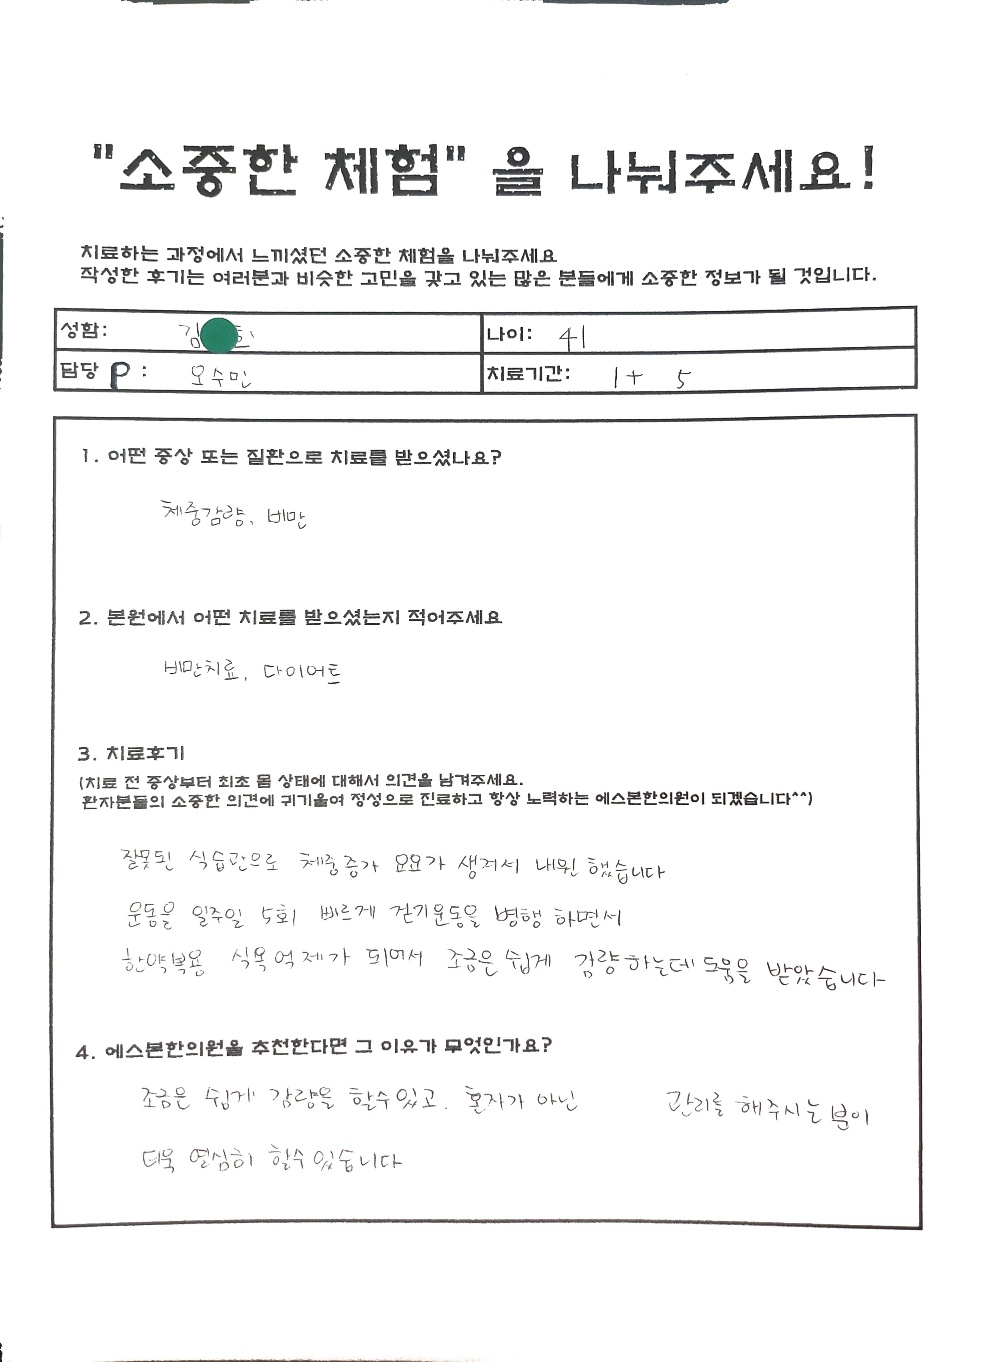 "소중한 체험" 을 나눠주세요!
치료하는 과정에서 느끼셨던 소중한 체험을 나눠주세요
작성한 후기는 여러분과 비슷한 고민을 갖고 있는 많은 분들에게 소중한 정보가 될 것입니다.
성함: 김 나이: 41
담당 P : 오수민 치료기간: 1+ 5
1. 어떤 증상 또는 질환으로 치료를 받으셨나요?
체중감량, 비만
2. 본원에서 어떤 치료를 받으셨는지 적어주세요
비만치료, 다이어트
3. 치료후기
(치료 전 증상부터 최초 몸 상태에 대해서 의견을 남겨주세요.
환자분들의 소중한 의견에 귀기울여 정성으로 진료하고 항상 노력하는 에스본한의원이 되겠습니다^^)
잘못된 식습관으로 체중증가 요요가 생겨서 내원 했습니다
운동을 일주일 5회 빠르게 걷기운동을 병행 하면서
한약복용 식욕억제가 되어서 조금은 쉽게 감량하는데 도움을 받았습니다
4. 에스본한의원을 추천한다면 그 이유가 무엇인가요?
조금은 쉽게 감량을 할수있고, 혼자가 아닌 관리를 해주시는 분이
더욱 열심히 할수있습니다